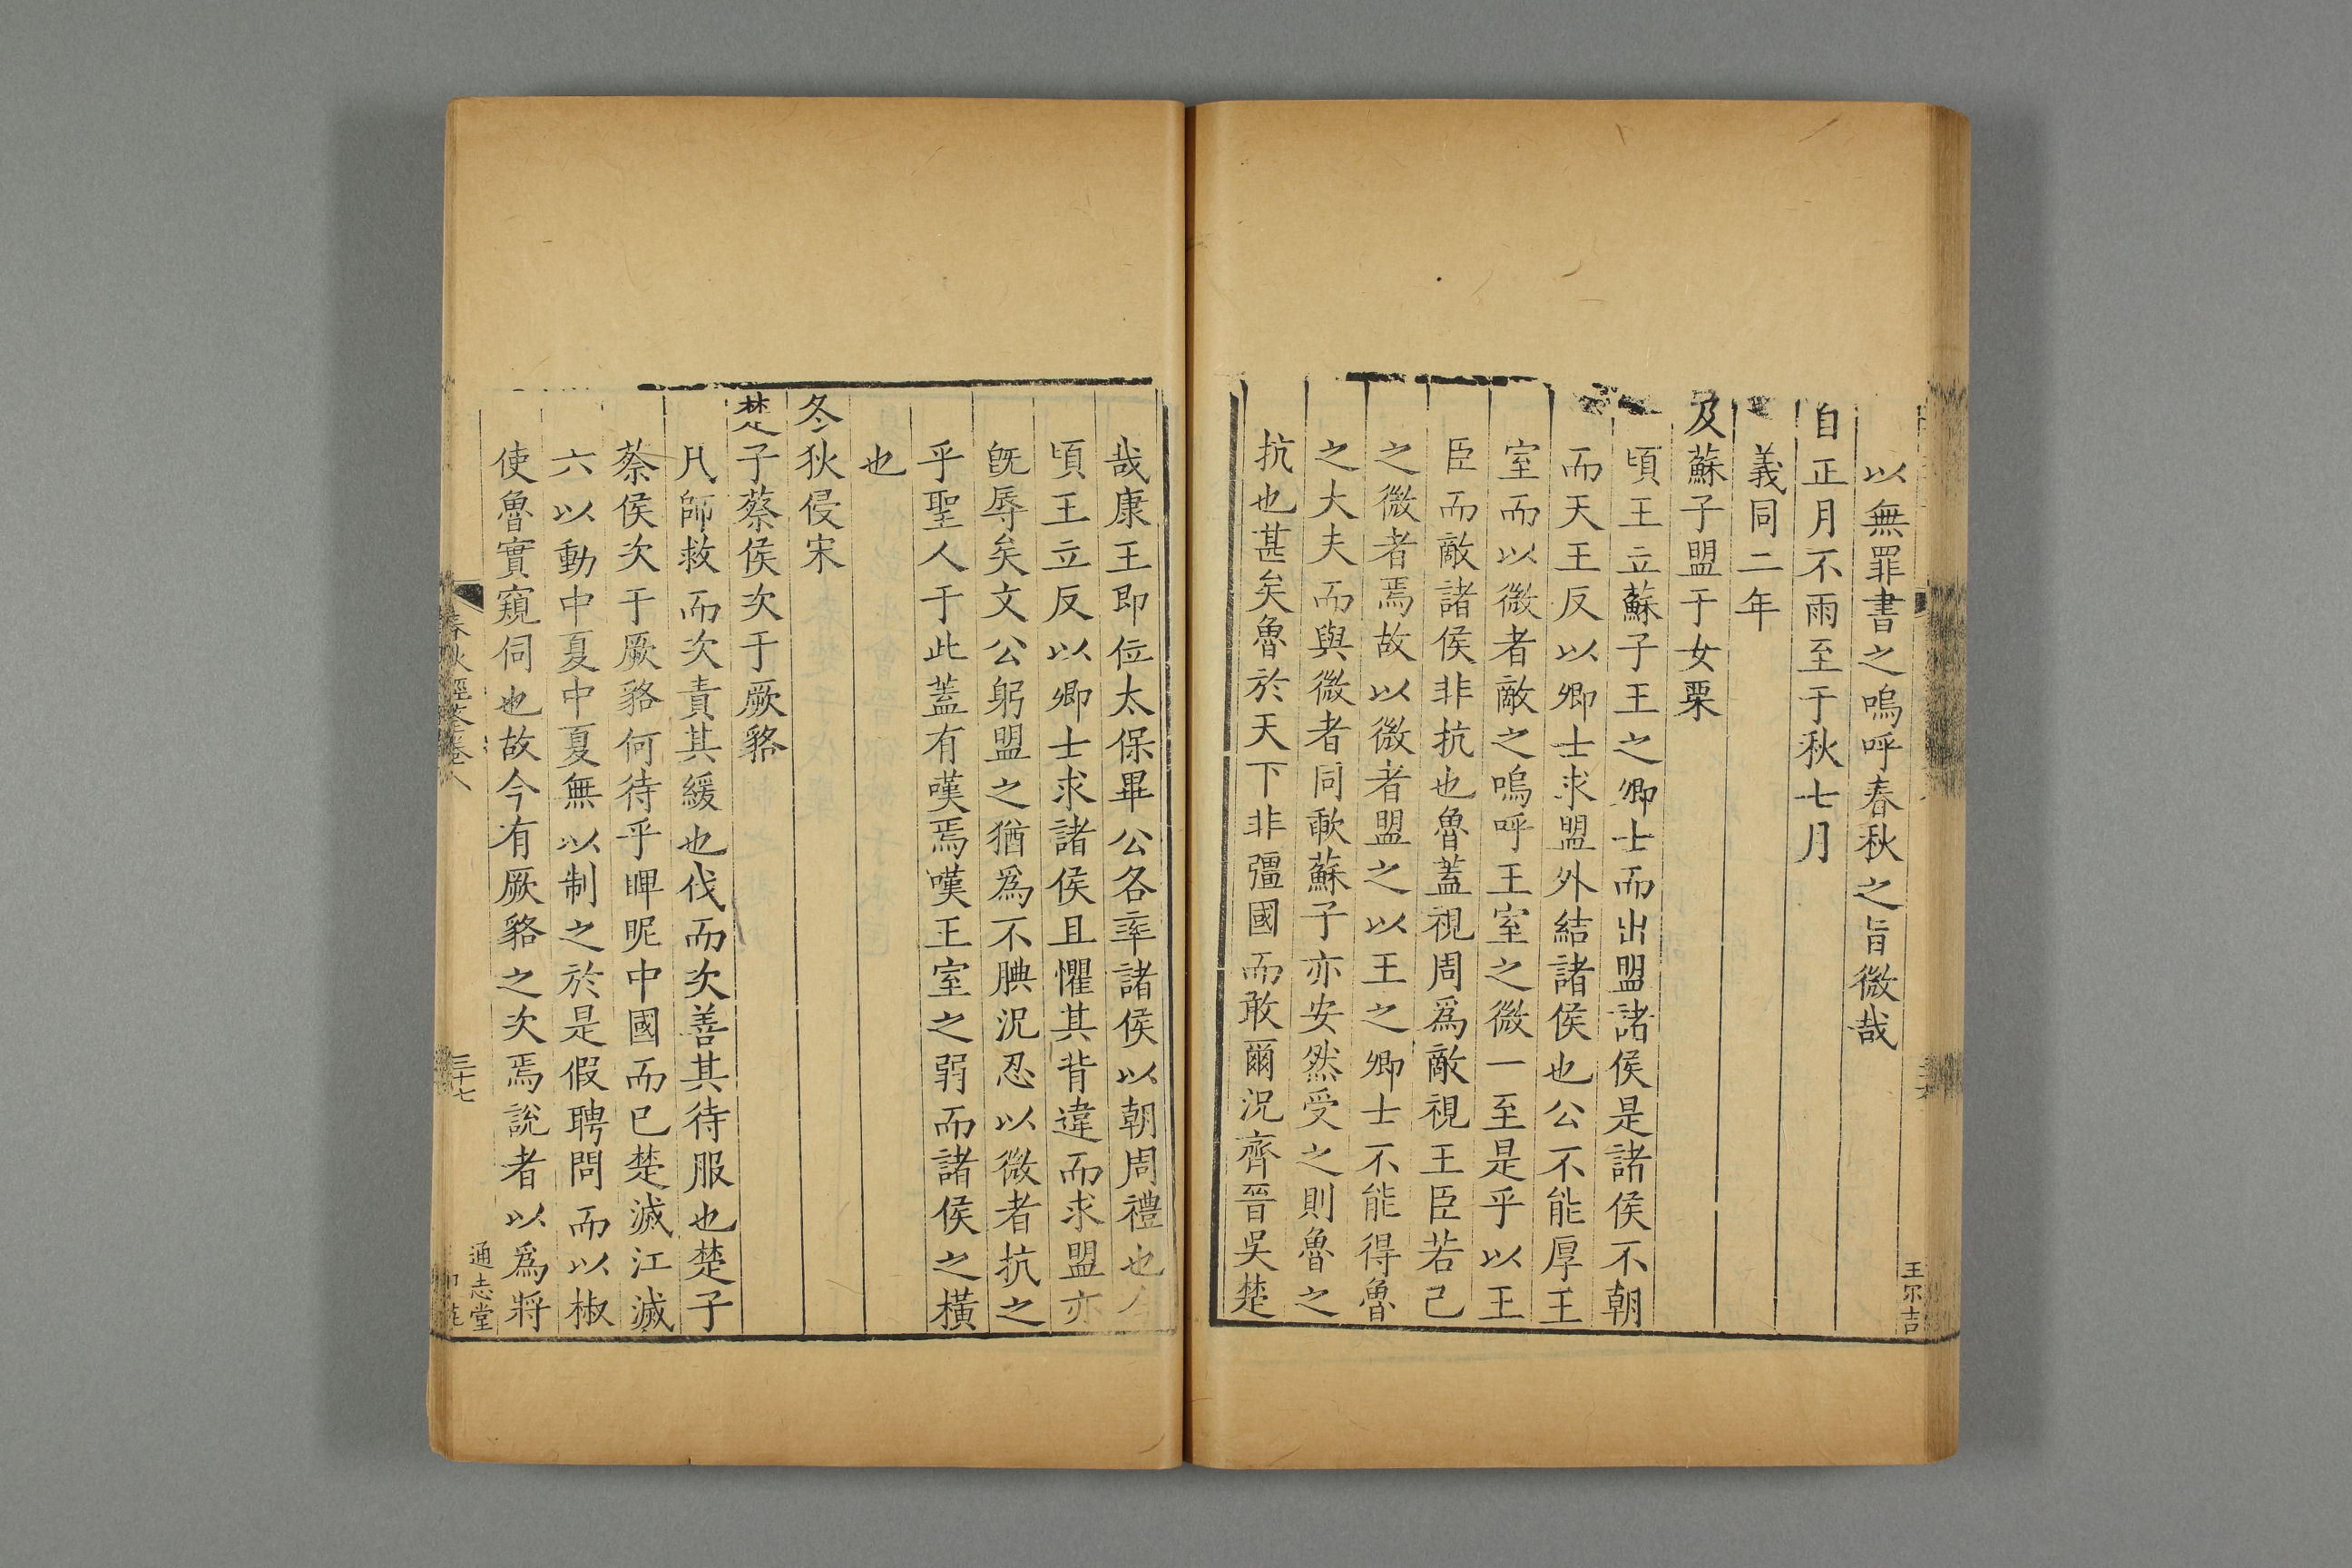 以無罪書之嗚呼春秋之旨微哉
自正月不雨至于秋七月
義同二年
及蘇子盟于女栗
頃王立蘇子王之卿士而出盟諸侯是諸侯不朝
而天王反以卿士求盟外結諸侯也公不能厚王
室而以微者敵之嗚呼王室之微一至是乎以王
臣而敵諸侯非抗也魯蓋視周爲敵視王臣若己
之微者焉故以微者盟之以王之卿士不能得魯
之大夫而與微者同歃蘇子亦安然受之則魯之
抗也甚矣魯於天下非彊國而敢爾況齊晉吳楚
王尔吉
哉康王即位太保畢公各率諸侯以朝周禮也
頃王立反以卿士求諸侯且懼其背違而求盟亦
旣辱矣文公躬盟之猶爲不腆況忍以微者抗之
乎聖人于此蓋有嘆焉嘆王室之弱而諸侯之橫
也
冬狄侵宋
楚子蔡侯次于厥貉
凡師救而次責其緩也伐而次善其待服也楚子
蔡侯次于厥貉何待乎睥睨中國而已楚滅江滅
六以動中夏中夏無以制之於是假聘問而以椒
使魯實窺伺也故今有厥貉之次焉說者以爲將
春秋經筌卷八
三十七
通志堂